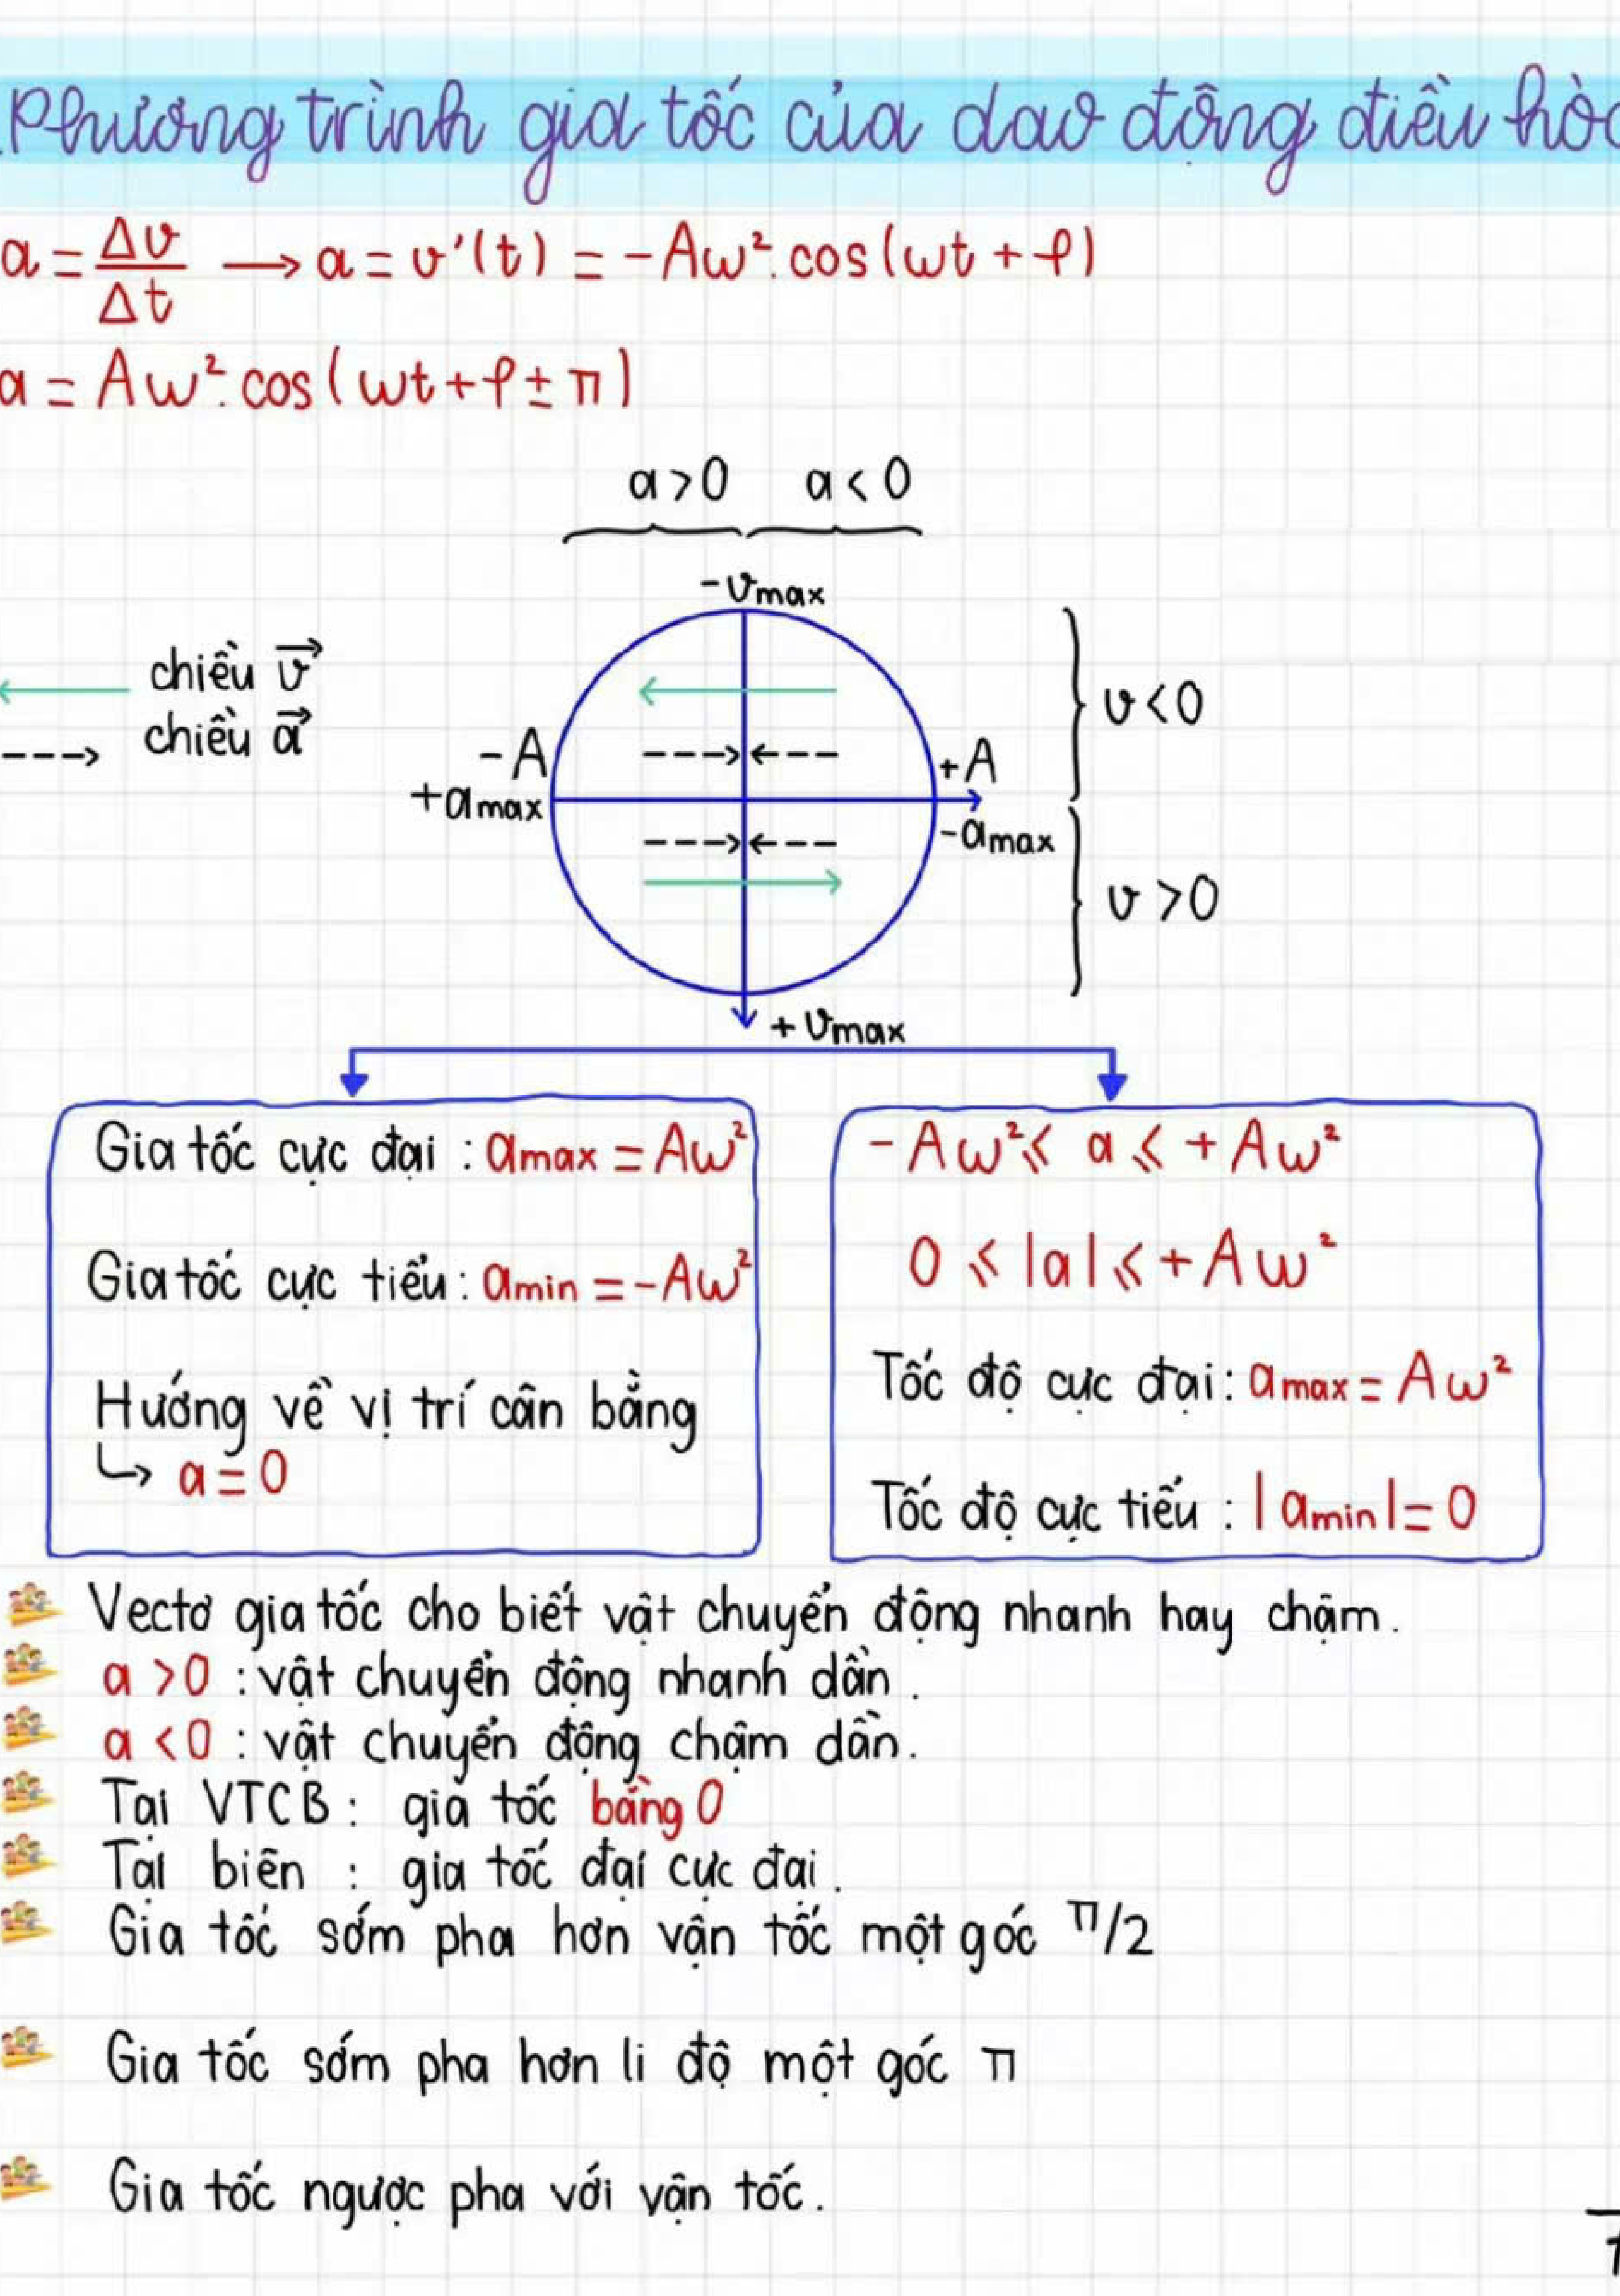 Phương trình gia tốc của dao động điều hò
a = Δv/Δt → a = v'(t) = -Aω².cos(ωt + φ)
a = Aω².cos(ωt + φ ± π)
a > 0 a < 0
-vmax
chiều v⃗
chiều a⃗
v < 0
-A
+A
+amax
-amax
v > 0
+vmax
Gia tốc cực đại : amax = Aω²
Gia tốc cực tiểu : amin = -Aω²
Hướng về vị trí cân bằng
↳ a = 0
-Aω² ⩽ a ⩽ +Aω²
0 ⩽ |a| ⩽ +Aω²
Tốc độ cực đại : amax = Aω²
Tốc độ cực tiếu : |amin| = 0
Vectơ gia tốc cho biết vật chuyển động nhanh hay chậm.
a > 0 : vật chuyển động nhanh dần.
a < 0 : vật chuyển động chậm dần.
Tại VTCB : gia tốc bằng 0
Tại biên : gia tốc đại cực đại.
Gia tốc sớm pha hơn vận tốc một góc π/2
Gia tốc sớm pha hơn li độ một góc π
Gia tốc ngược pha với vận tốc.